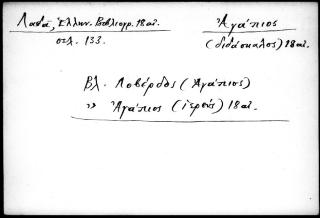 Λαδᾶ, Ἑλλην. Βιβλιογρ. 18 αἰ.
σελ. 133.
Ἀγάπιος
(διδάσκαλος) 18 αἰ.
Βλ. Λοβέρδος (Ἀγάπιος)
» Ἀγάπιος (ἱερεύς) 18 αἰ.